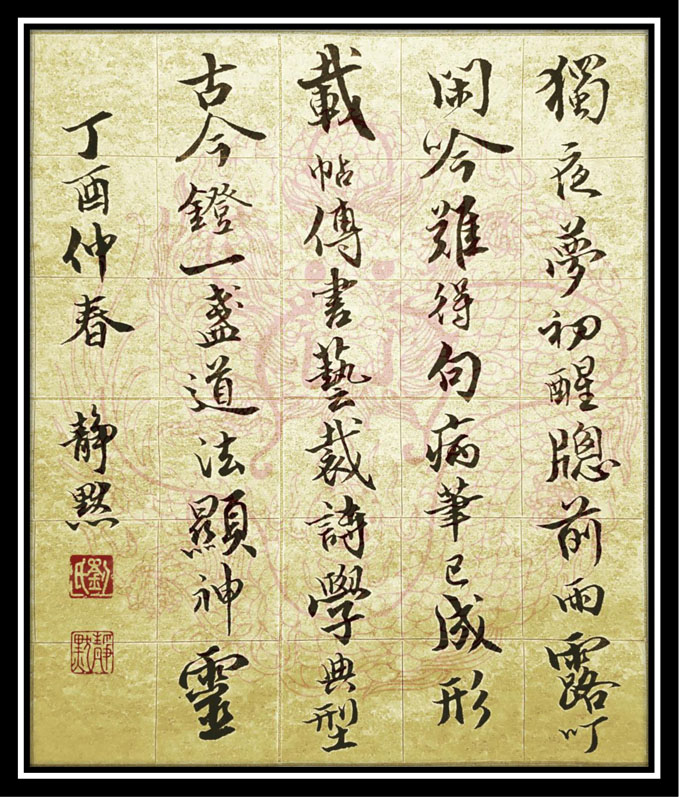 獨夜夢初醒牕前雨露叮
閑吟難得句病筆已成形
載帖傳書藝裁詩學典型
古今鐙一盞道法顯神靈
丁酉仲春 靜默
劉氏
靜默